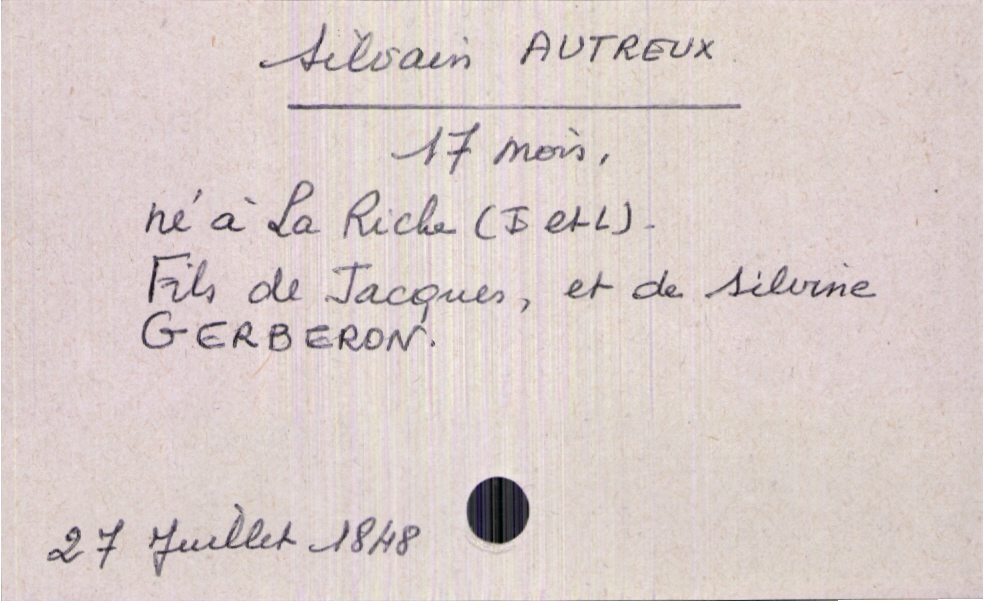 Silvain AUTREUX
17 mois,
né à La Riche (I et L).
Fils de Jacques, et de Silvine
GERBERON.
27 Juillet 1848